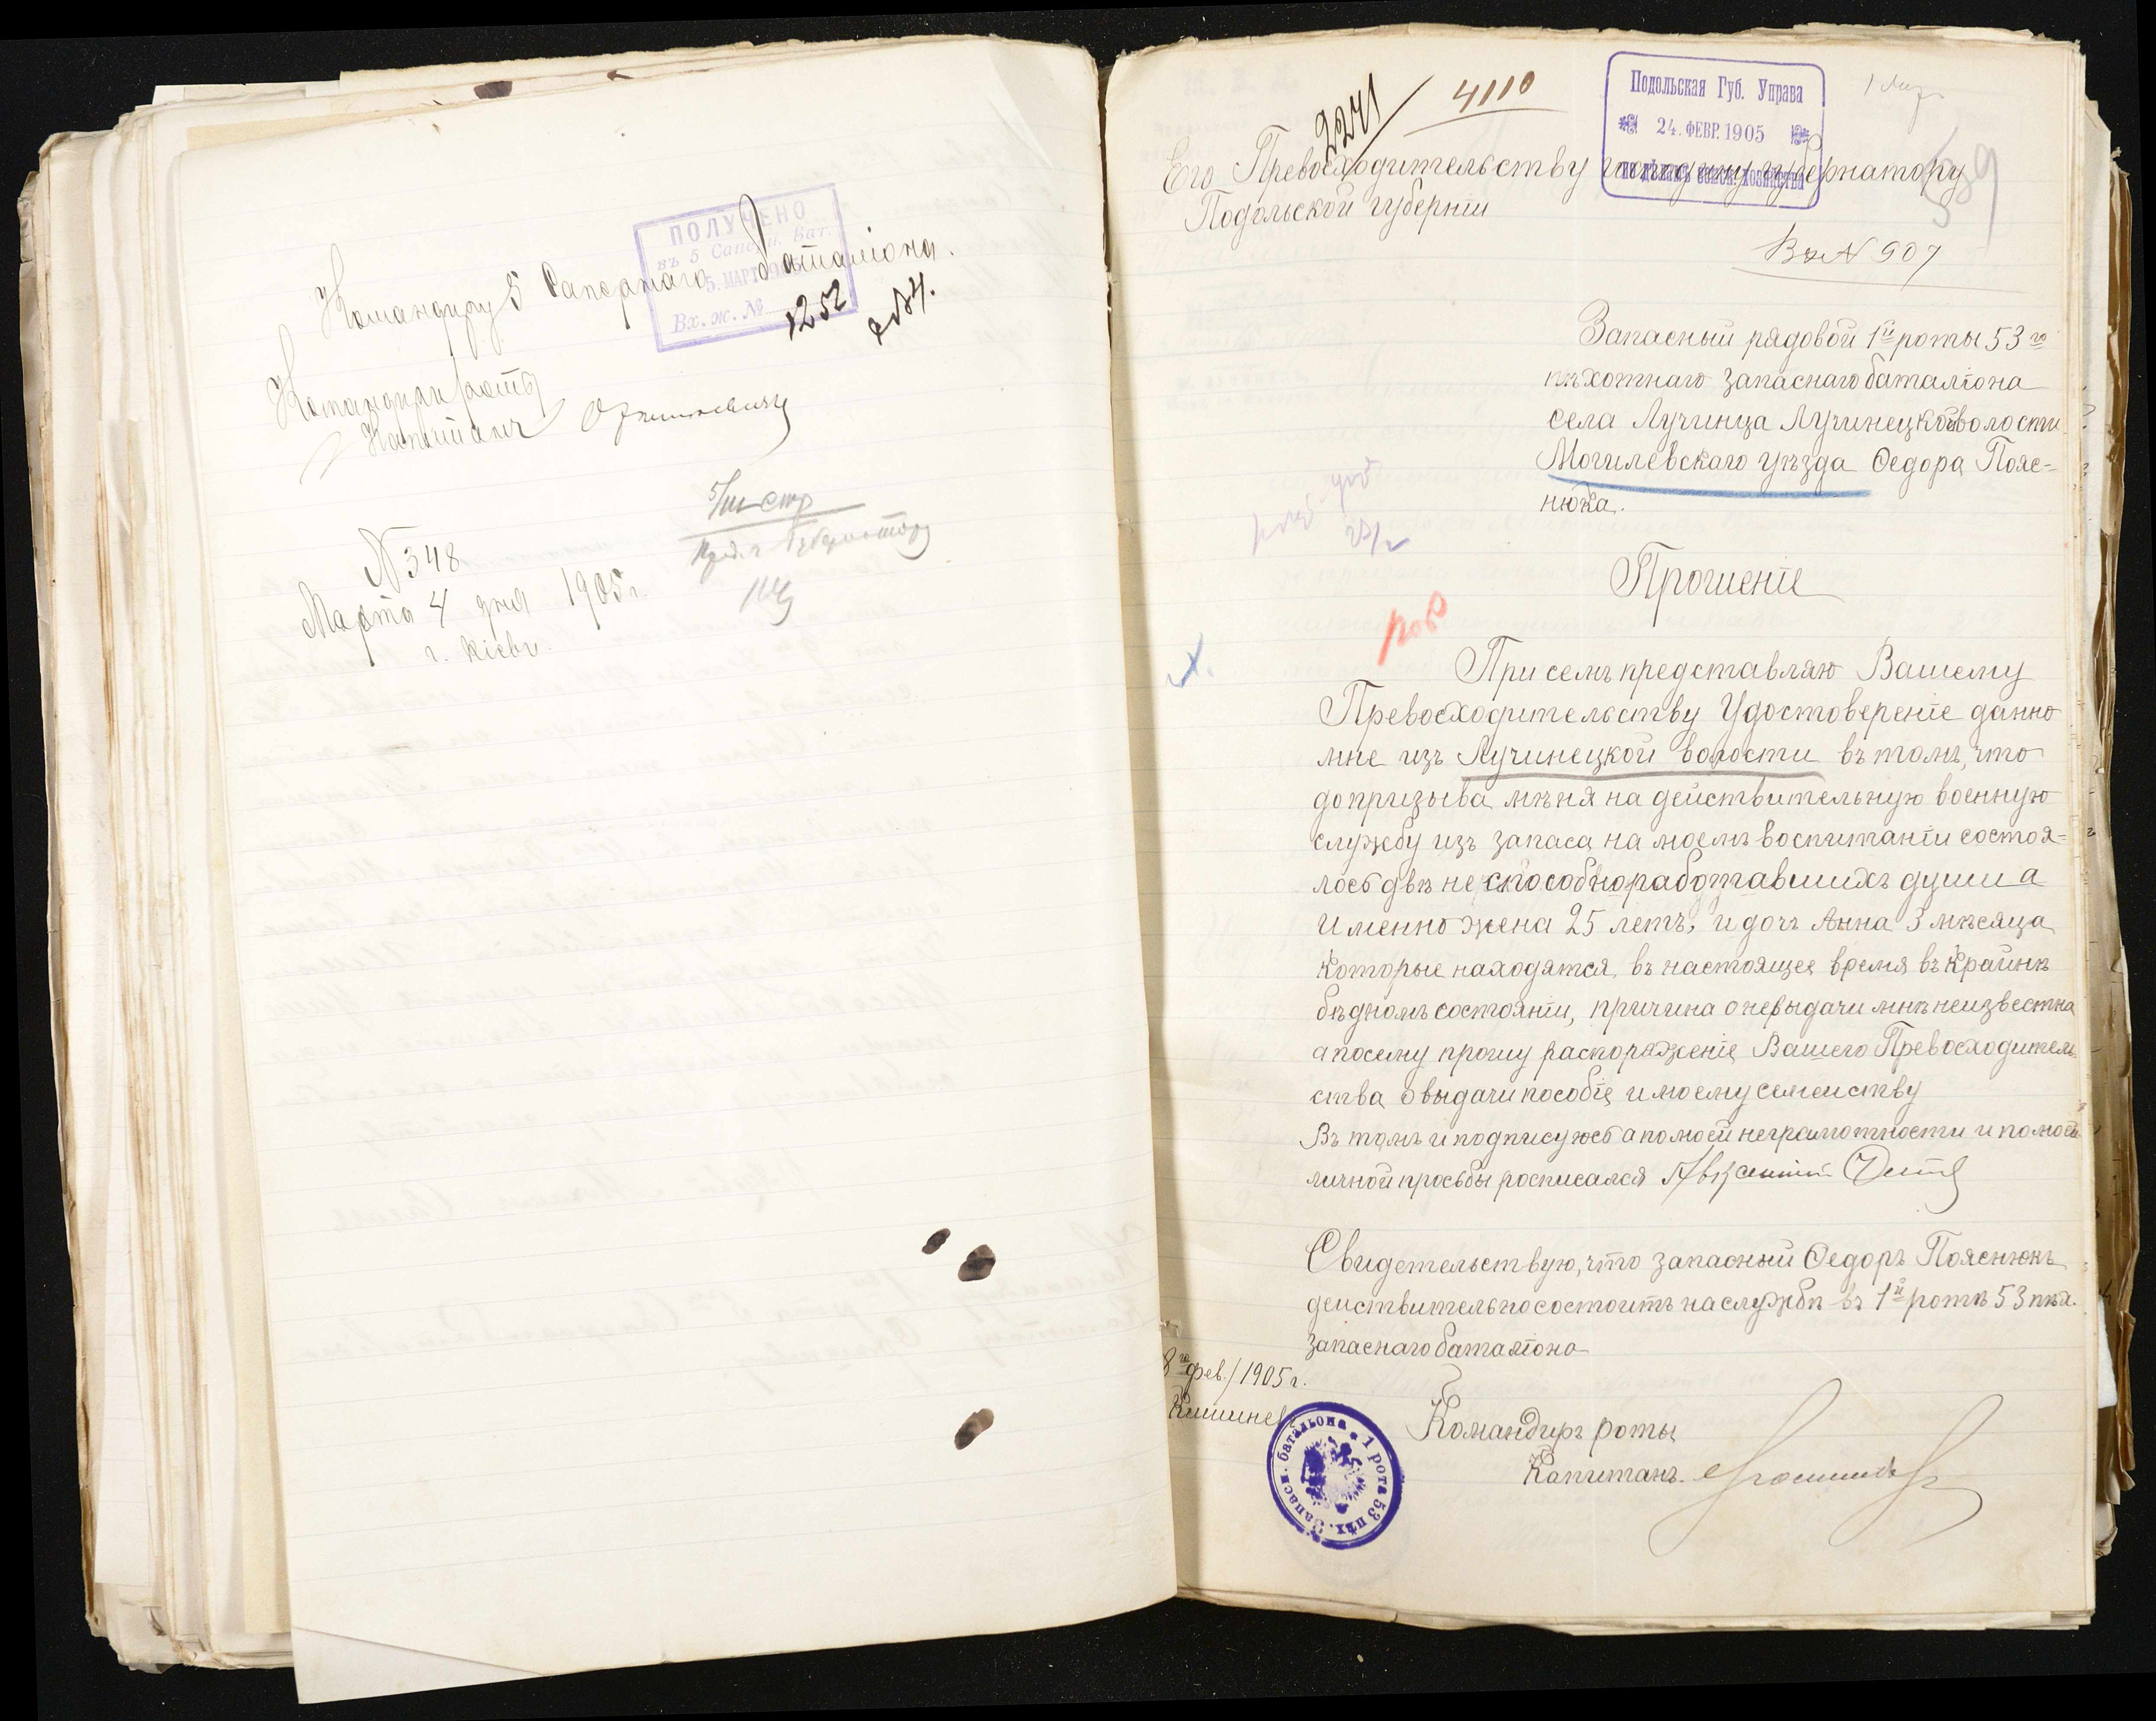 ПОЛУЧЕНО
въ 5 Саперн. Бат.
5. МАРТ 1905
Вх. ж. № 1252
Командиру 5 Сапернаго Баталіона.
Командиръ роты
Капитанъ
5/III стр
Губернатору
N 348
Марта 4 дня 1905 г.
г. Кіевъ.
2241 4110
Подольская Губ. Управа
24. ФЕВР. 1905
по дѣламъ земск. хозяйства
Его Превосходительству господину губернатору
Подольской губерніи
Вх N 907
Запасный рядовой 1й роты 53го
пѣхотнаго запаснаго баталіона
села Лучинца Лучинецкой волости
Могилевскаго уѣзда Ѳедора Пояс=
нюка.
Прошеніе
При семъ представляю Вашему
Превосходительству Удостовереніе данно
мне изъ Лучинецкой волости въ томъ, что
до призыва мѣня на действительную военную
службу изъ запаса на моемъ воспитаніи состоя=
лось двѣ не способно работавшихъ души а
именно жена 25 летъ, и дочь Анна 3 мѣсяца
которые находятся въ настоящее время въ крайнѣ
бѣдномъ состояніи, причина о невыдачи мнѣ неизвестна
а посему прошу распоряженіе Вашего Превосходитель
ства о выдачи пособіе и моему семейству
Въ томъ и подписуюсь а по моей неграмотности и по моей
личной просьбы росписался
Свидетельствую, что запасный Ѳедоръ Пояснюкъ
действительно состоитъ на службѣ въ 1й ротѣ 53 пѣх.
запаснаго баталіона
8го фев./1905 г.
Кишинев
Командиръ роты
Капитанъ
1 рота 53 пѣх. Запасн. батальона